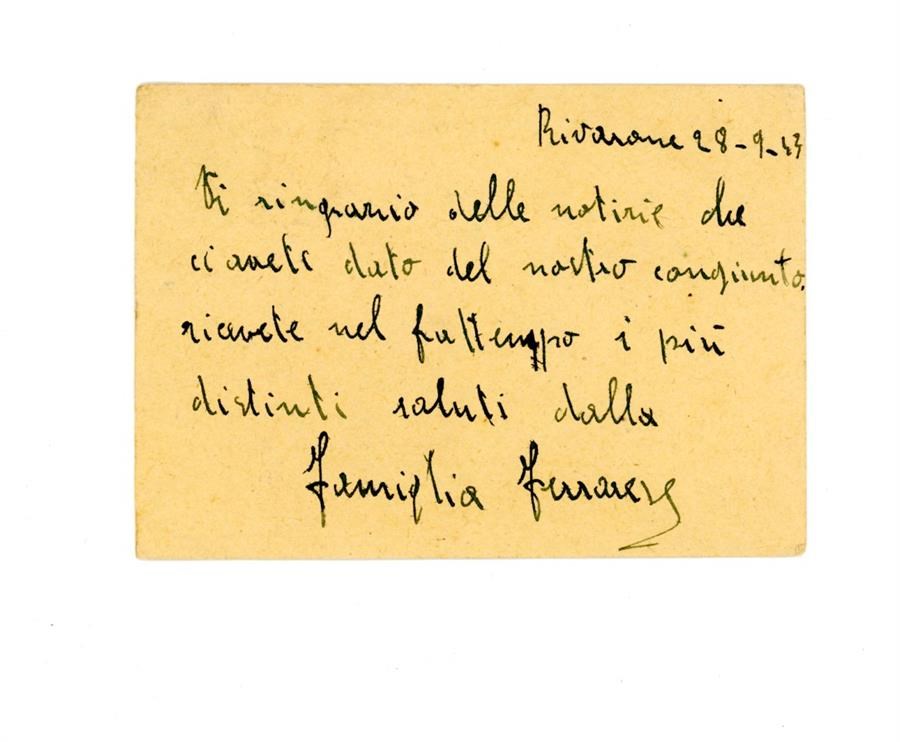 Rivarone 28-9-43
Vi ringrazio delle notizie che
ci avete dato del nostro congiunto.
ricevete nel frattempo i più
distinti saluti dalla
Famiglia Ferrarese